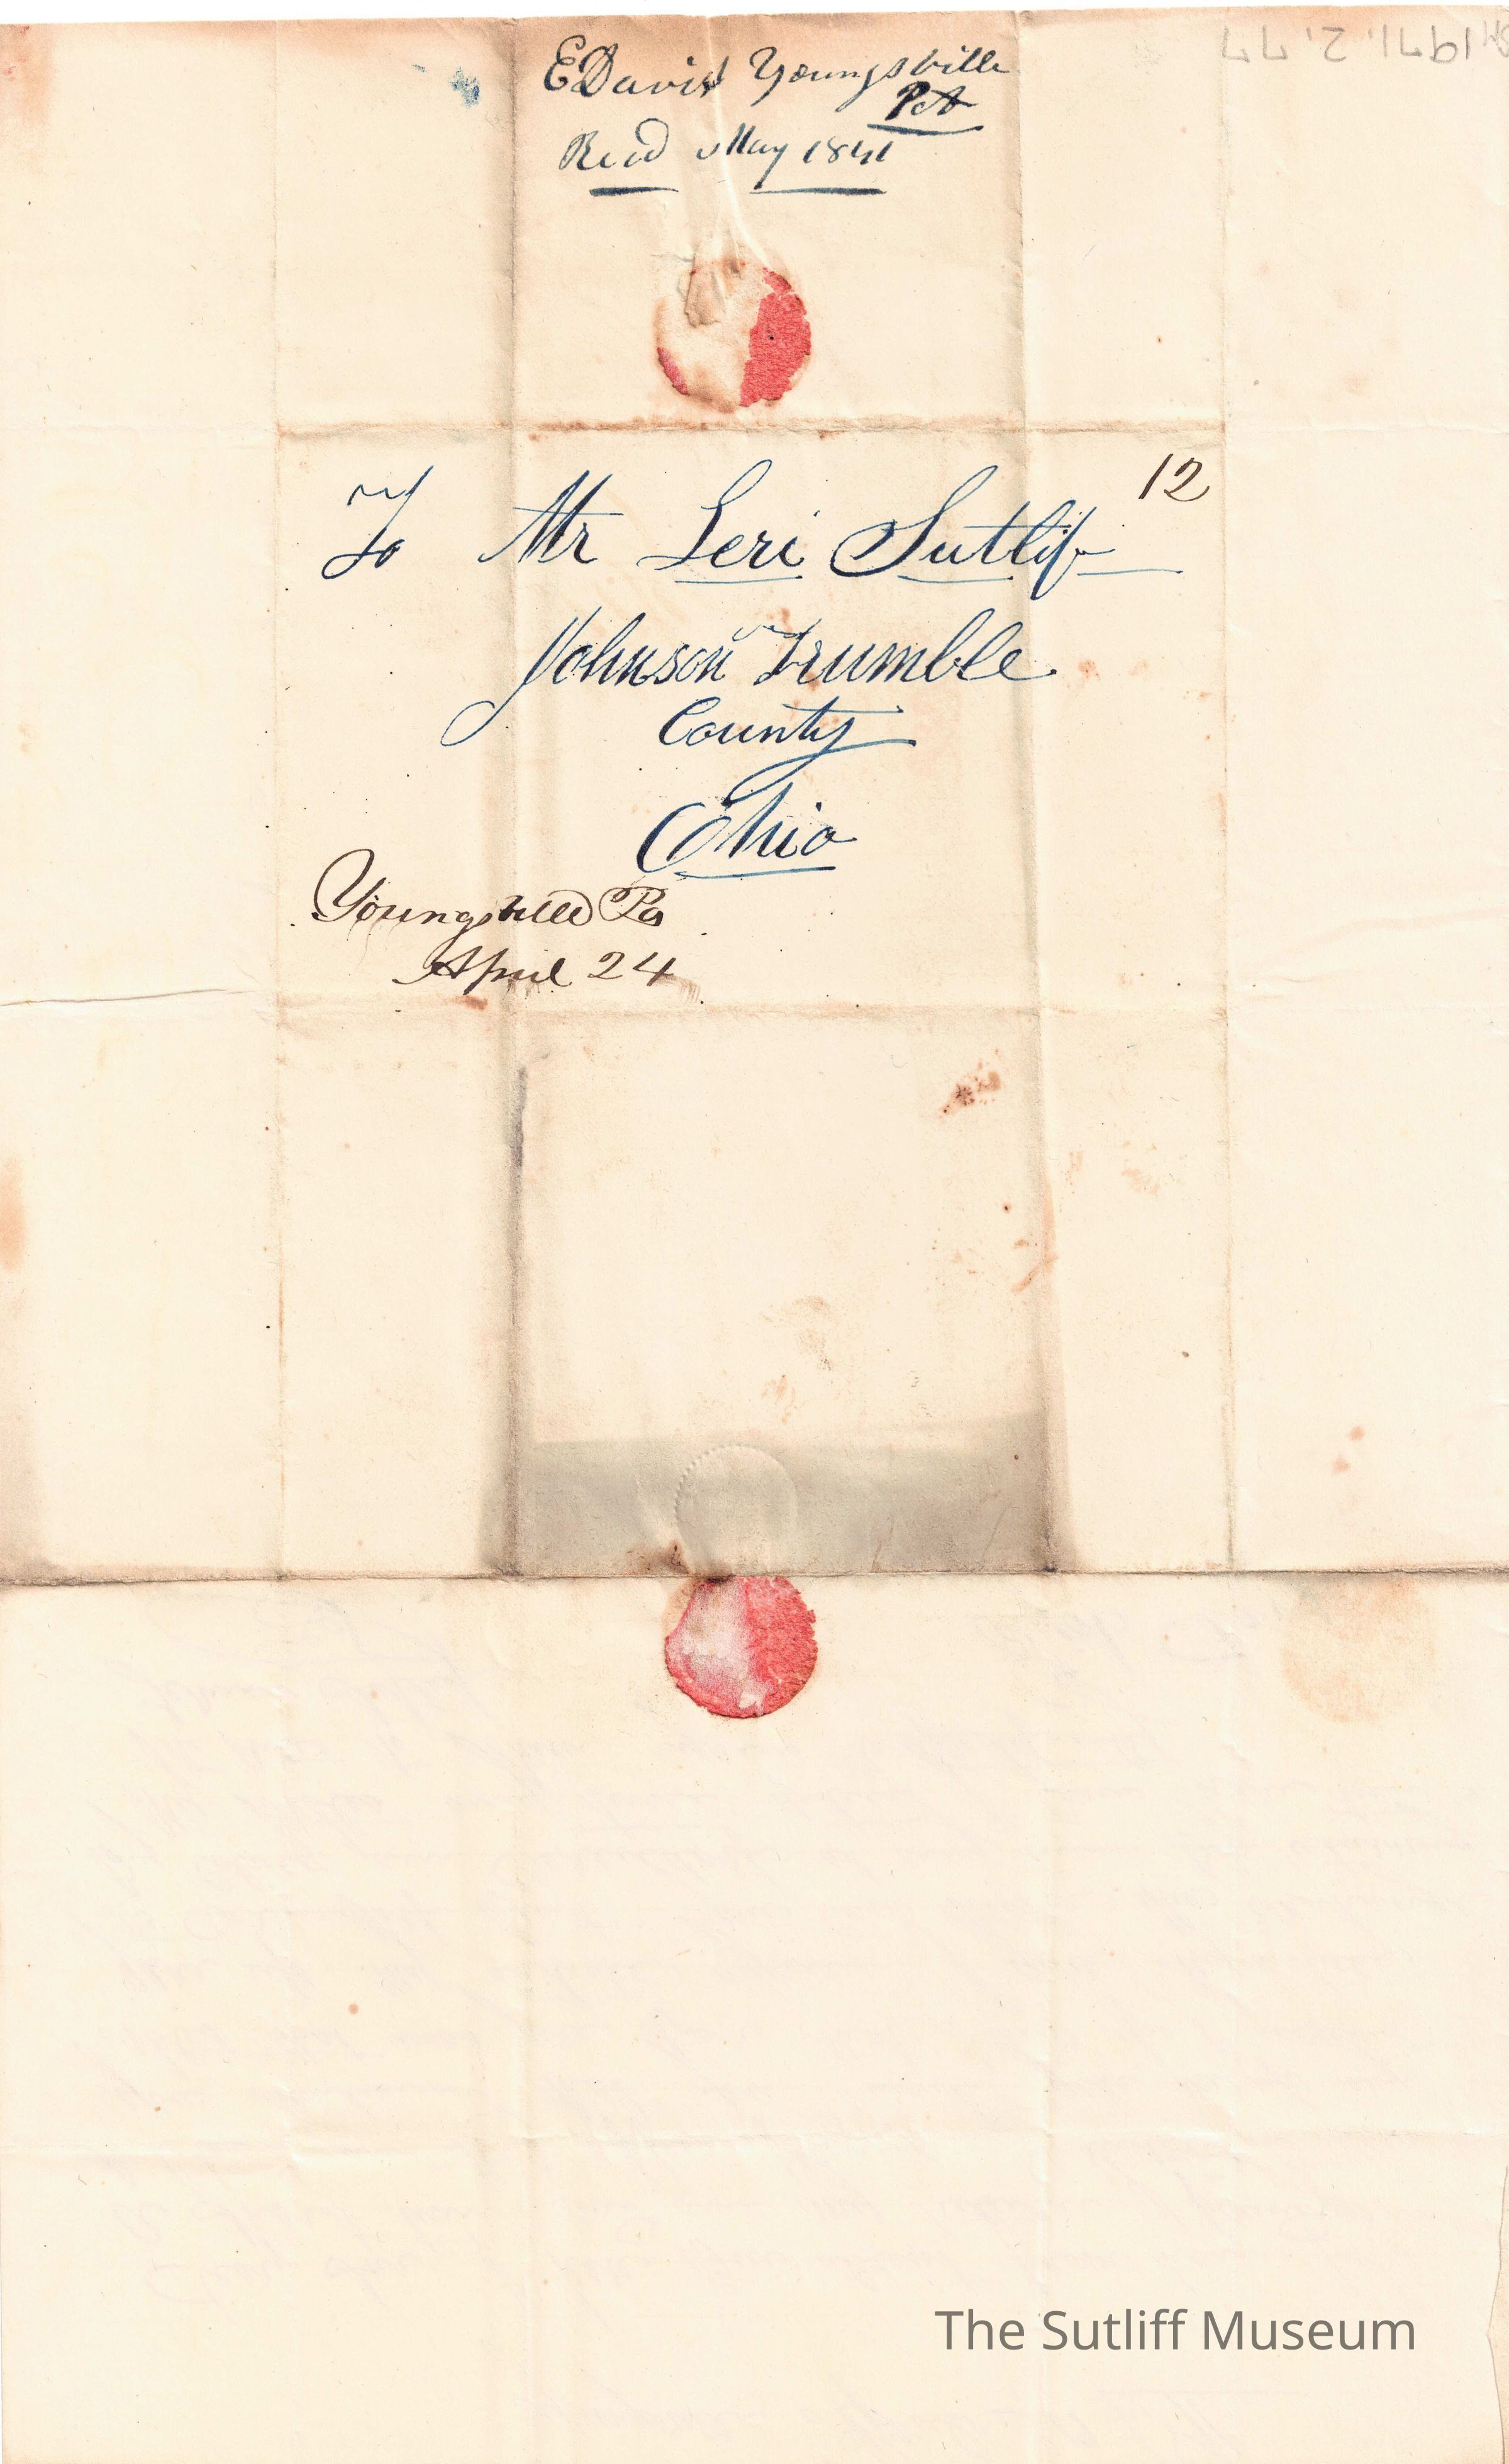 E Davis Youngsville
Pa
Recd May 1841
12
To Mr Levi Sutlif
Johnson Trumble
County
Ohio
Youngsville Pa
April 24
1971.2.77
The Sutliff Museum